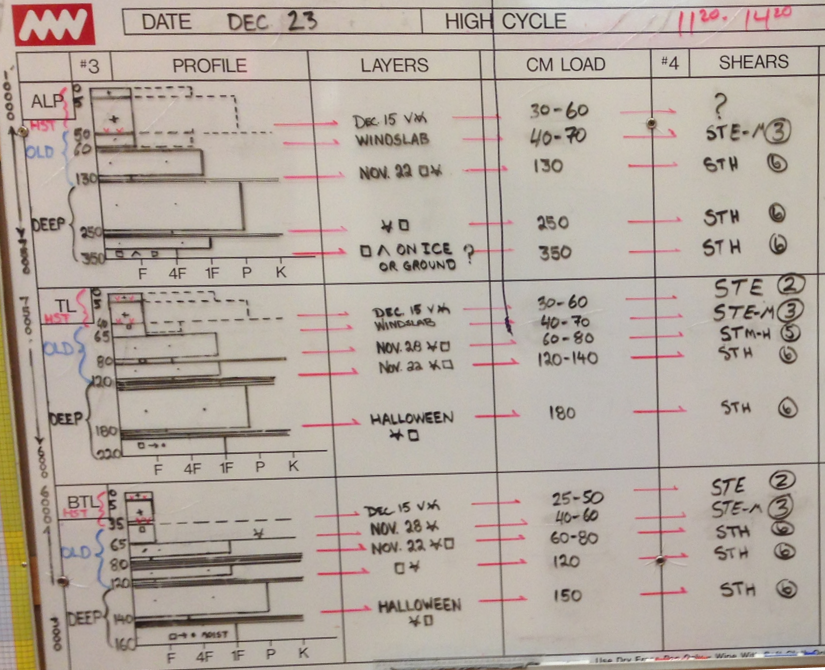 DATE DEC 23 HIGH CYCLE 11²⁰-14²⁰
#3 PROFILE LAYERS CM LOAD #4 SHEARS
ALP 0
5
HST DEC. 15 V 30-60 ?
50 WINDSLAB 40-70 STE-M 3
OLD 60
130 NOV. 22 □ 130 STH 6
DEEP
250 □ 250 STH 6
350 □ Λ ON ICE ? 350 STH 6
OR GROUND
F 4F 1F P K
STE 2
TL DEC. 15 V 30-60 STE-M 3
HST WINDSLAB 40-70 STM-H 5
65 NOV. 28 □ 60-80
OLD 80 NOV. 22 □ 120-140 STH 6
120
DEEP HALLOWEEN 180 STH 6
180 □
220
F 4F 1F P K
BTL 0
5 DEC 15 V 25-50 STE 2
HST 35 NOV. 28 40-60 STE-M 3
OLD 65 NOV. 22 □ 60-80 STH 6
80 □ 120 STH 6
120
DEEP 140 HALLOWEEN 150 STH 6
□
160 MOIST
F 4F 1F P K